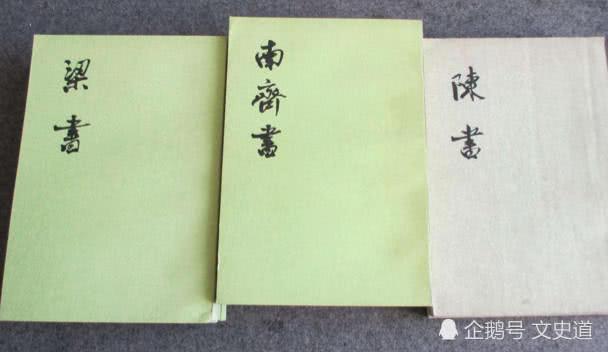 梁書
南齊書
陳書
企鹅号 文史道